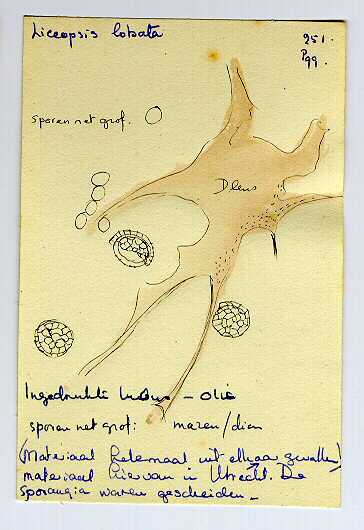 Liceopsis lobata
251.
P99.
sporen net grof.
Dlens
Ingedrukte - olie
sporen net grof: mazen/diam
(Materiaal helemaal uit elkaar gevallen)
materiaal hiervan in Utrecht. De
sporangia waren gescheiden -